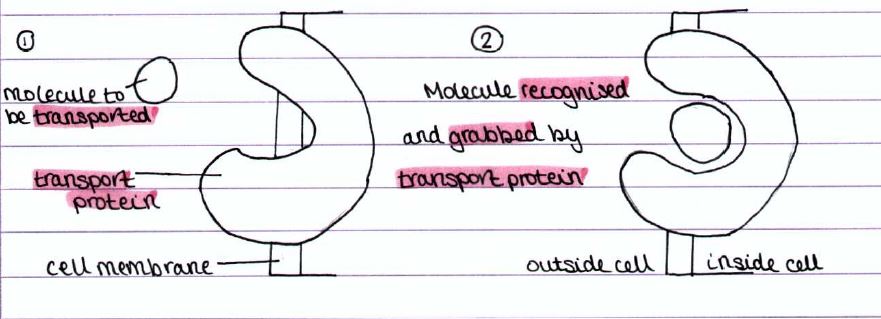 ①
molecule to
be transported
transport
protein
cell membrane
②
Molecule recognised
and grabbed by
transport protein
outside cell
inside cell